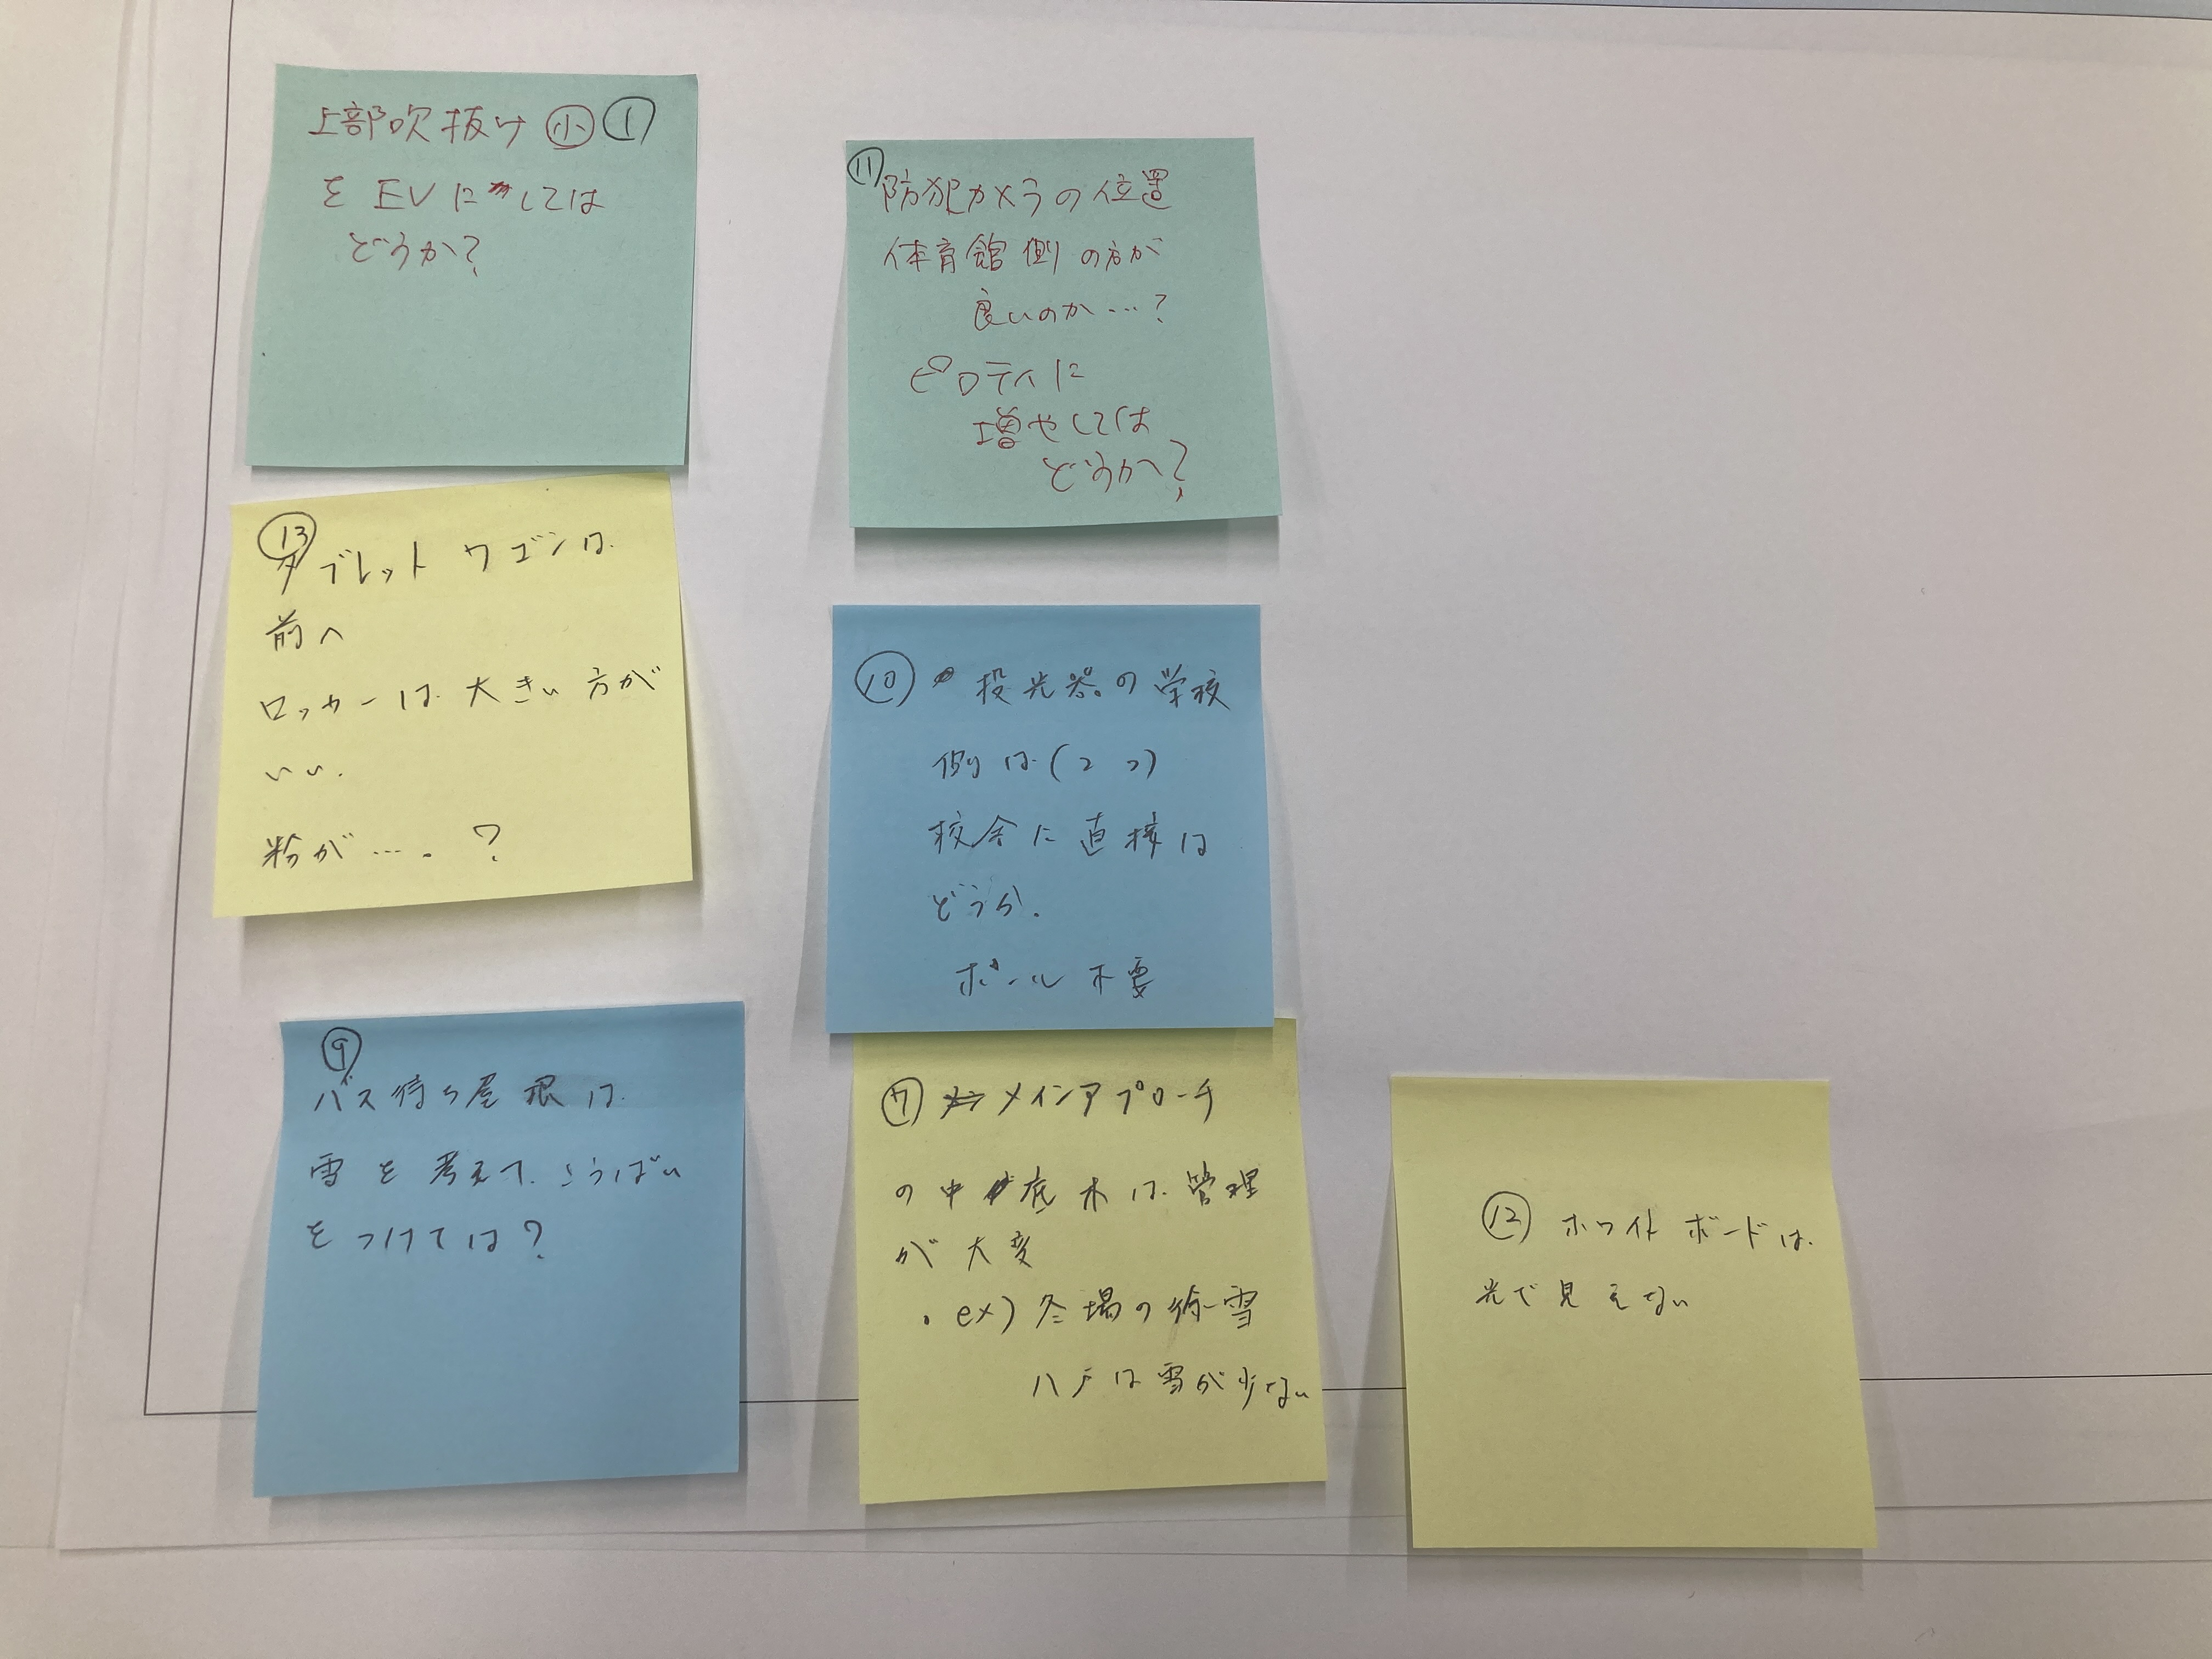 上部吹抜け ㊤小 ①
を EVにしては
どうか?
⑪
防犯カメラの位置
体育館側の方が
良いのか…?
ピロティに
増やしては
どうか?
⑬
タブレットワゴンは
前へ
ロッカーは大きい方が
いい.
粉が….?
⑩ 投光器の学校
側は(2つ)
校舎に直接は
どうか.
ポール不要
⑨
バス待ち屋根は
雪を考えて、こうばい
をつけては?
⑦ メインアプローチ
の中底木は管理
が大変
・ex)冬場の除雪
八戸は雪が少ない
⑫ ホワイトボードは
光で見えない